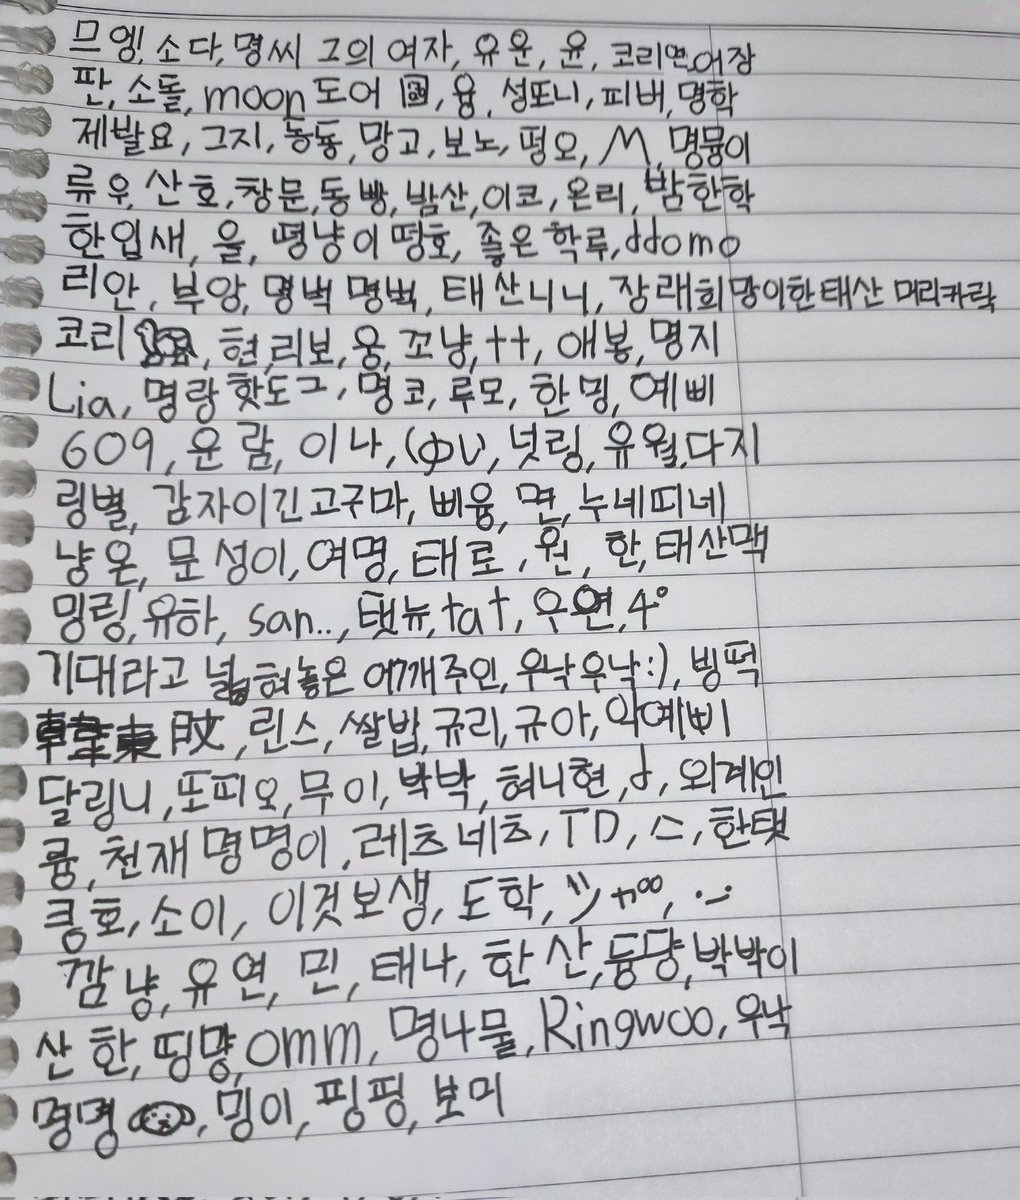 믄엥!, 소다, 명씨 그의 여자, 유운, 윤, 코리안어장
판, 소돌, moon도어, 용, 성또니, 피버, 명학
제발요, 그지, 농농, 망고, 보노, 떵오, M, 명뮹이
류우, 산호, 창문, 동빵, 밤산, 이코, 온리, 밤한학
한입새, 율, 떵냥이 떵호, 좋은 학루, ddomo
리안, 부앙, 명벅 명벅, 태산니니, 장래희망이한태산 머리카락
코리, 현, 리보, 웅, 꼬냥, ++, 애봉, 명지
Lia, 명랑 핫도그, 명코, 루모, 한밍, 예삐
609, 운람, 이나, 넛링, 유월, 다지
링별, 감자이긴고구마, 삐융, 면, 누네띠네
냥온, 문성이, 여명, 태로, 원, 한, 태산맥
밍링, 유하, san.., 탯뉴, tat, 우연, 4°
기대라고 넓혀놓은 어깨주인, 우낙우낙:), 빙떡
東旼, 린스, 쌀밥, 규리, 규아, 악예삐
달링니, 또피오, 무이, 박박, 혀니현, d, 외계인
륭, 천재명명이, 레츠네츠, TD, 스, 한탯
킁호, 소이, 이것보생, 도학, ツ
깜냥, 유연, 민, 태나, 한산, 둥댱, 박박이
산한, 띵먕, omm, 명나물, Ringwoo, 우낙
명명, 밍이, 핑핑, 보미